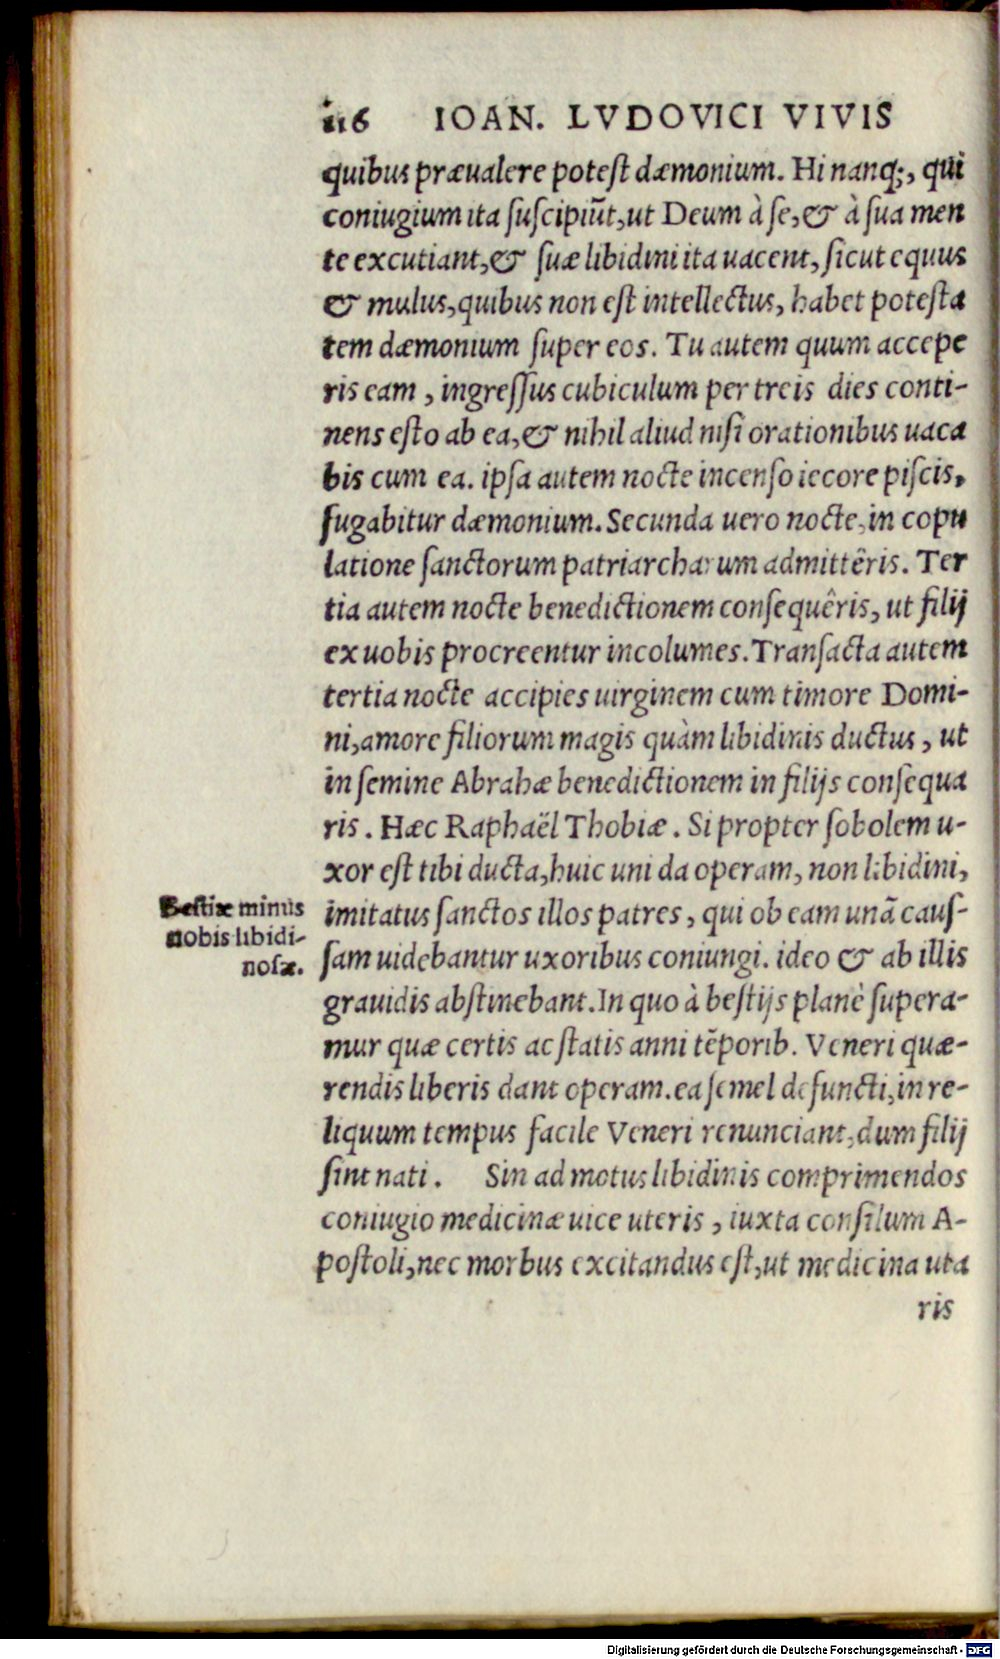 116 IOAN. LVDOVICI VIVIS
quibus præualere potest dæmonium. Hi nanq;, qui
coniugium ita suscipiũt, ut Deum à se, & à sua men
te excutiant, & suæ libidini ita uacent, sicut equus
& mulus, quibus non est intellectus, habet potesta
tem dæmonium super eos. Tu autem quum accepe
ris eam, ingressus cubiculum per treis dies conti-
nens esto ab ea, & nihil aliud nisi orationibus uaca
bis cum ea. ipsa autem nocte incenso iecore piscis,
fugabitur dæmonium. Secunda uero nocte, in copu
latione sanctorum patriarcharum admittêris. Ter
tia autem nocte benedictionem consequêris, ut filij
ex uobis procreentur incolumes. Transacta autem
tertia nocte accipies uirginem cum timore Domi-
ni, amore filiorum magis quàm libidinis ductus, ut
in semine Abrahæ benedictionem in filijs consequa
ris. Hæc Raphaël Thobiæ. Si propter sobolem u-
xor est tibi ducta, huic uni da operam, non libidini,
Bestiæ minus
nobis libidi-
nosæ.
imitatus sanctos illos patres, qui ob eam unã caus-
sam uidebantur uxoribus coniungi. ideo & ab illis
grauidis abstinebant. In quo à bestijs planè supera-
mur quæ certis ac statis anni tẽporib. Veneri quæ-
rendis liberis dant operam. ea semel defuncti, in re-
liquum tempus facile Veneri renunciant, dum filij
sint nati. Sin ad motus libidinis comprimendos
coniugio medicinæ uice uteris, iuxta consilum A-
postoli, nec morbus excitandus est, ut medicina uta
ris
Digitalisierung gefördert durch die Deutsche Forschungsgemeinschaft - DFG